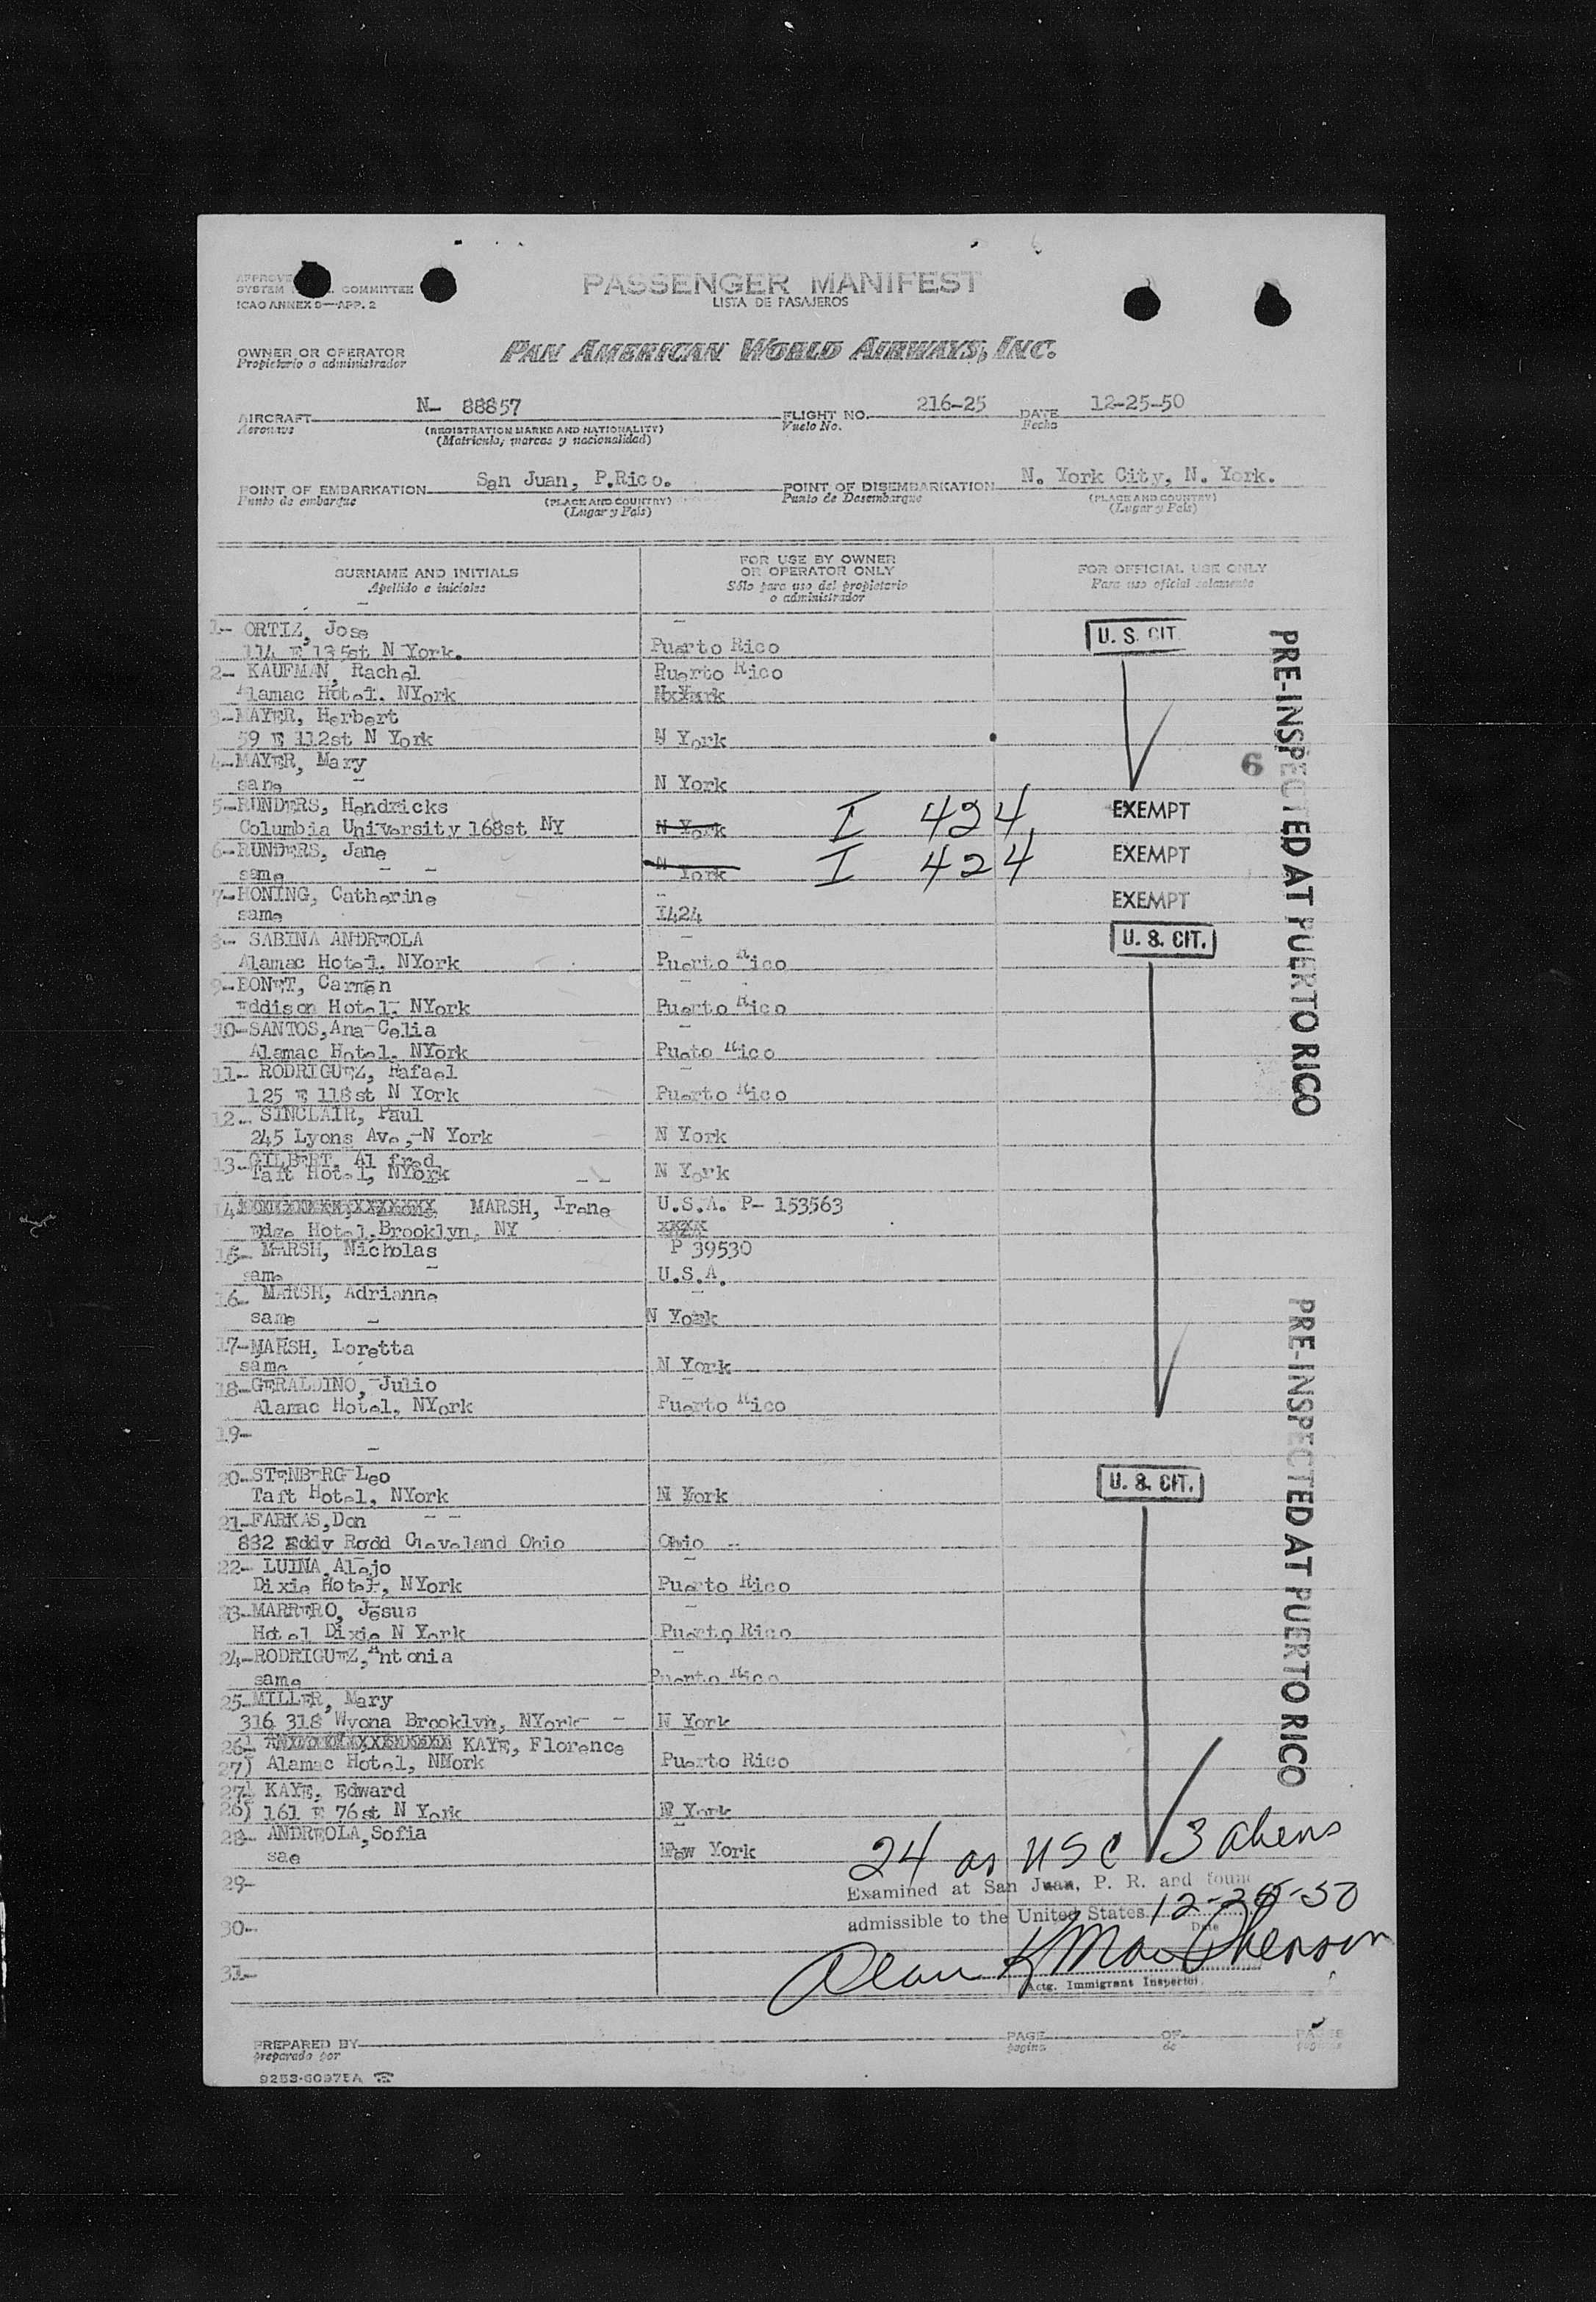 SYSTEM COMMITTEE
ICAO ANNEX 9—APP. 2
PASSENGER MANIFEST
LISTA DE PASAJEROS
OWNER OR OPERATOR
Propietario o administrador
PAN AMERICAN WORLD AIRWAYS, INC.
AIRCRAFT N- 88857 FLIGHT NO. 216-25 DATE 12-25-50
Aeronave (REGISTRATION MARKS AND NATIONALITY) Vuelo No. Fecha
(Matricula, marcas y nacionalidad)
POINT OF EMBARKATION San Juan, P.Rico. POINT OF DISEMBARKATION N. York City, N. York.
Punto de embarque (PLACE AND COUNTRY) Punto de Desembarque (PLACE AND COUNTRY)
(Lugar y Pais) (Lugar y Pais)
SURNAME AND INITIALS
Apellido e iniciales
FOR USE BY OWNER
OR OPERATOR ONLY
Sólo para uso del propietario
o administrador
FOR OFFICIAL USE ONLY
Para uso oficial solamente
1- ORTIZ, Jose U. S. CIT.
114 E 135st N York. Puerto Rico
2- KAUFMAN, Rachel Puerto Rico
Alamac Hotel. NYork
3-MAYER, Herbert
59 E 112st N York N York
4-MAYER, Mary 6
same N York
5-RUNDERS, Hendricks EXEMPT
Columbia University 168st NY N York I 424,
6-RUNDERS, Jane EXEMPT
same N York I 424
7-HONING, Catherine EXEMPT
same I424
8- SABINA ANDREOLA U. S. CIT.
Alamac Hotel. NYork Puerto Rico
9-BONET, Carmen
Eddison Hotel. NYork Puerto Rico
10-SANTOS,Ana Celia
Alamac Hotel. NYork Pueto Rico
11- RODRIGUEZ, Rafael
125 E 118st N York Puerto Rico
12- SINCLAIR, Paul
245 Lyons Ave,-N York N York
13-GILBERT, Alfred
Taft Hotel, NYork N York
14 MARSH, Irene U.S.A. P- 153563
Edge Hotel.Brooklyn, NY xxxx
15- MARSH, Nicholas P 39530
same U.S.A.
16- MARSH, Adrianne
same N York
17-MARSH, Loretta
same N York
18-GERALDINO, Julio
Alamac Hotel, NYork Puerto Rico
19-
20-STENBERG Leo U. S. CIT.
Taft Hotel, NYork N York
21-FARKAS,Don
832 Eddy Rodd Cleveland Ohio Ohio
22- LUINA,Alejo
Dixie Hotel, NYork Puerto Rico
23-MARRERO, Jesus
Hotel Dixie N York Puerto Rico
24-RODRIGUEZ,Antonia
same Puerto Rico
25-MILLER, Mary
316 318 Wyona Brooklyn, NYork N York
26) KAYE, Florence
27) Alamac Hotel, NMork Puerto Rico
27) KAYE, Edward
26) 161 E 76st N York N York
28- ANDREOLA,Sofia
sae New York
24 as USC 3 aliens
29-
Examined at San Juan, P. R. and found
30-
admissible to the United States 12-25-50
Date
31-
Dean K MacPherson
Actg. Immigrant Inspector.
PRE-INSPECTED AT PUERTO RICO
PRE-INSPECTED AT PUERTO RICO
PREPARED BY PAGE OF PAGES
preparado por pagina de paginas